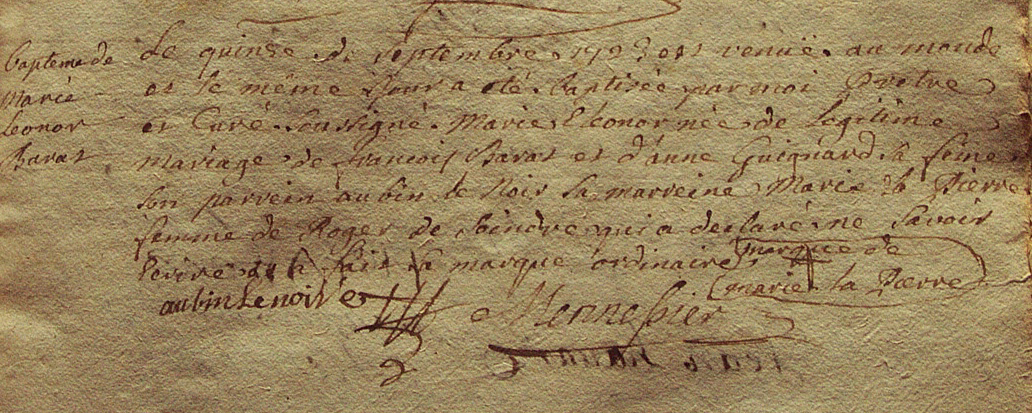 bapteme de
Marie
Leonor
Barat
Le quinze de septembre 1723 est venuë au monde
et le même Jour a été baptisée par moi Prêtre
et Curé soussigné Marie Eleonor née de legitime
mariage de francois Barat et d'anne Guignard sa féme
son parrein aubin le Noir sa marreine Marie la Pierre
femme de Roger de qui a declaré ne savoir
Ecrire et à fait sa marque ordinaire marque de
marie la Pierre
aubin Lenoir
Mennessier